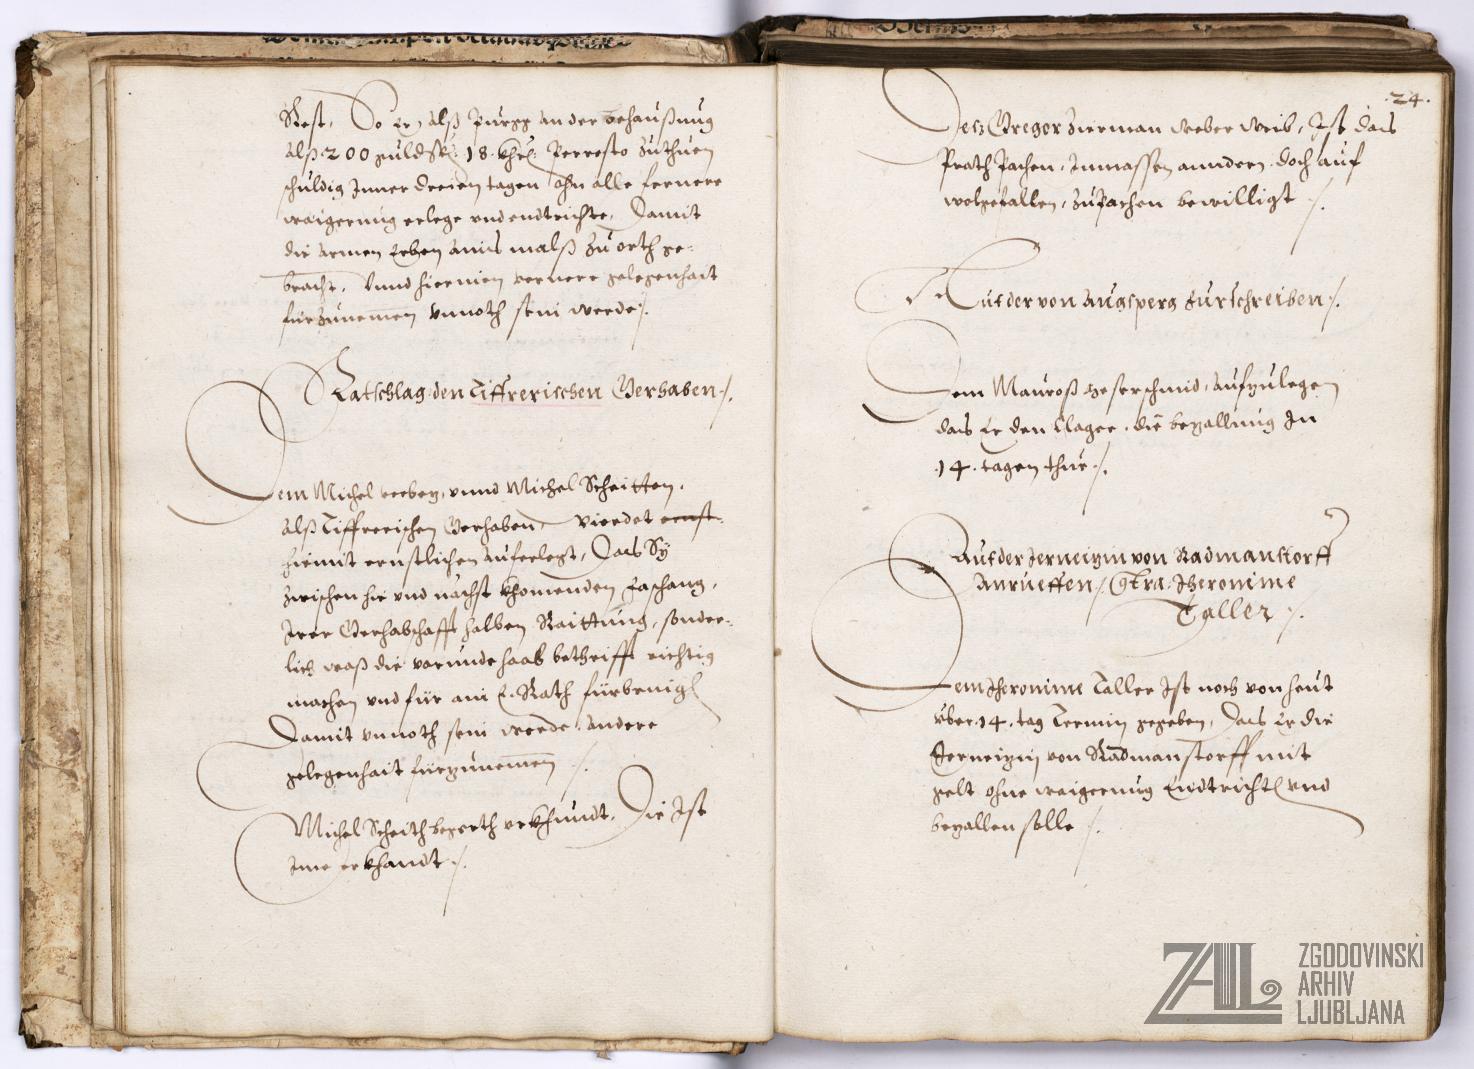 Rest, So Er, alß Pürgg an der behaußung
alß 200 guld R: 18 khr: Per resto zuthuen
schuldig Inner dreien tagen ohn alle fernere
waigerung erlege vnd endtrichte, Damit
die armen Erben ains malß zu orth ge-
bracht, Vnnd hierinen vernere gelegenhait
fürzunemen vnnoth sein werde /.
Ratschlag den Tiffrerischen Gerhaben /.
Dem Michel vnnd Michel Scheitten,
alß Tiffrerischen Gerhaben, Wierdet ernst
hiemit ernstlichen auferlegt, Das Sÿ
zwischen hie vnd nächst khomenden Faschang,
Irer Gerhabschafft halben Raittung, sonder-
lich waß die varunde haab bethrifft richtig
machen vnd für ain E. Rath fürbring
Damit vnnoth sein werde, andere
gelegenhait fürzunemen /.
Michel Scheith begerth vrkhundt, Die Ist
Ime erkhandt /.
24.
Des Gregor Zierman weber weib, Ist das
Prath Pachen, Inmassen anndern, doch auf
wolgefallen, zuPachen bewilligt /.
Auf der von Augsperg Furschreiben /.
Dem Mauroß Messerschmid, aufzulegen
das Er den Clager, die bezallung In
14. tagen thue /.
Auf der Jerneizin von Radmanstorff
Anrueffen /. Contra Iheronime
Taller /.
Dem Iheronime Taller Ist noch von heut
vber 14. tag Termin gegeben, Das Er die
Jerneizin von Radmanstorff mit
gelt ohne waigerung Endtricht vnd
bezallen solle /.
ZAL
ZGODOVINSKI
ARHIV
LJUBLJANA